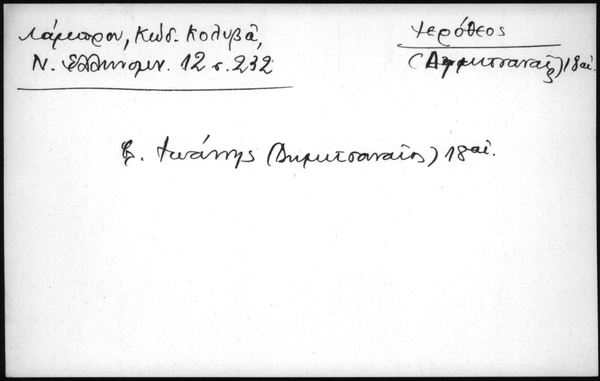 Λάμπρου, Κώδ. Κολυβᾶ,
Ν. Ἑλληνομν. 12 σ. 232
Ἱερόθεος
(Δημιτσαναῖος) 18 αἰ.
β. Ἰωάννης (Δημιτσαναῖος) 18 αἰ.